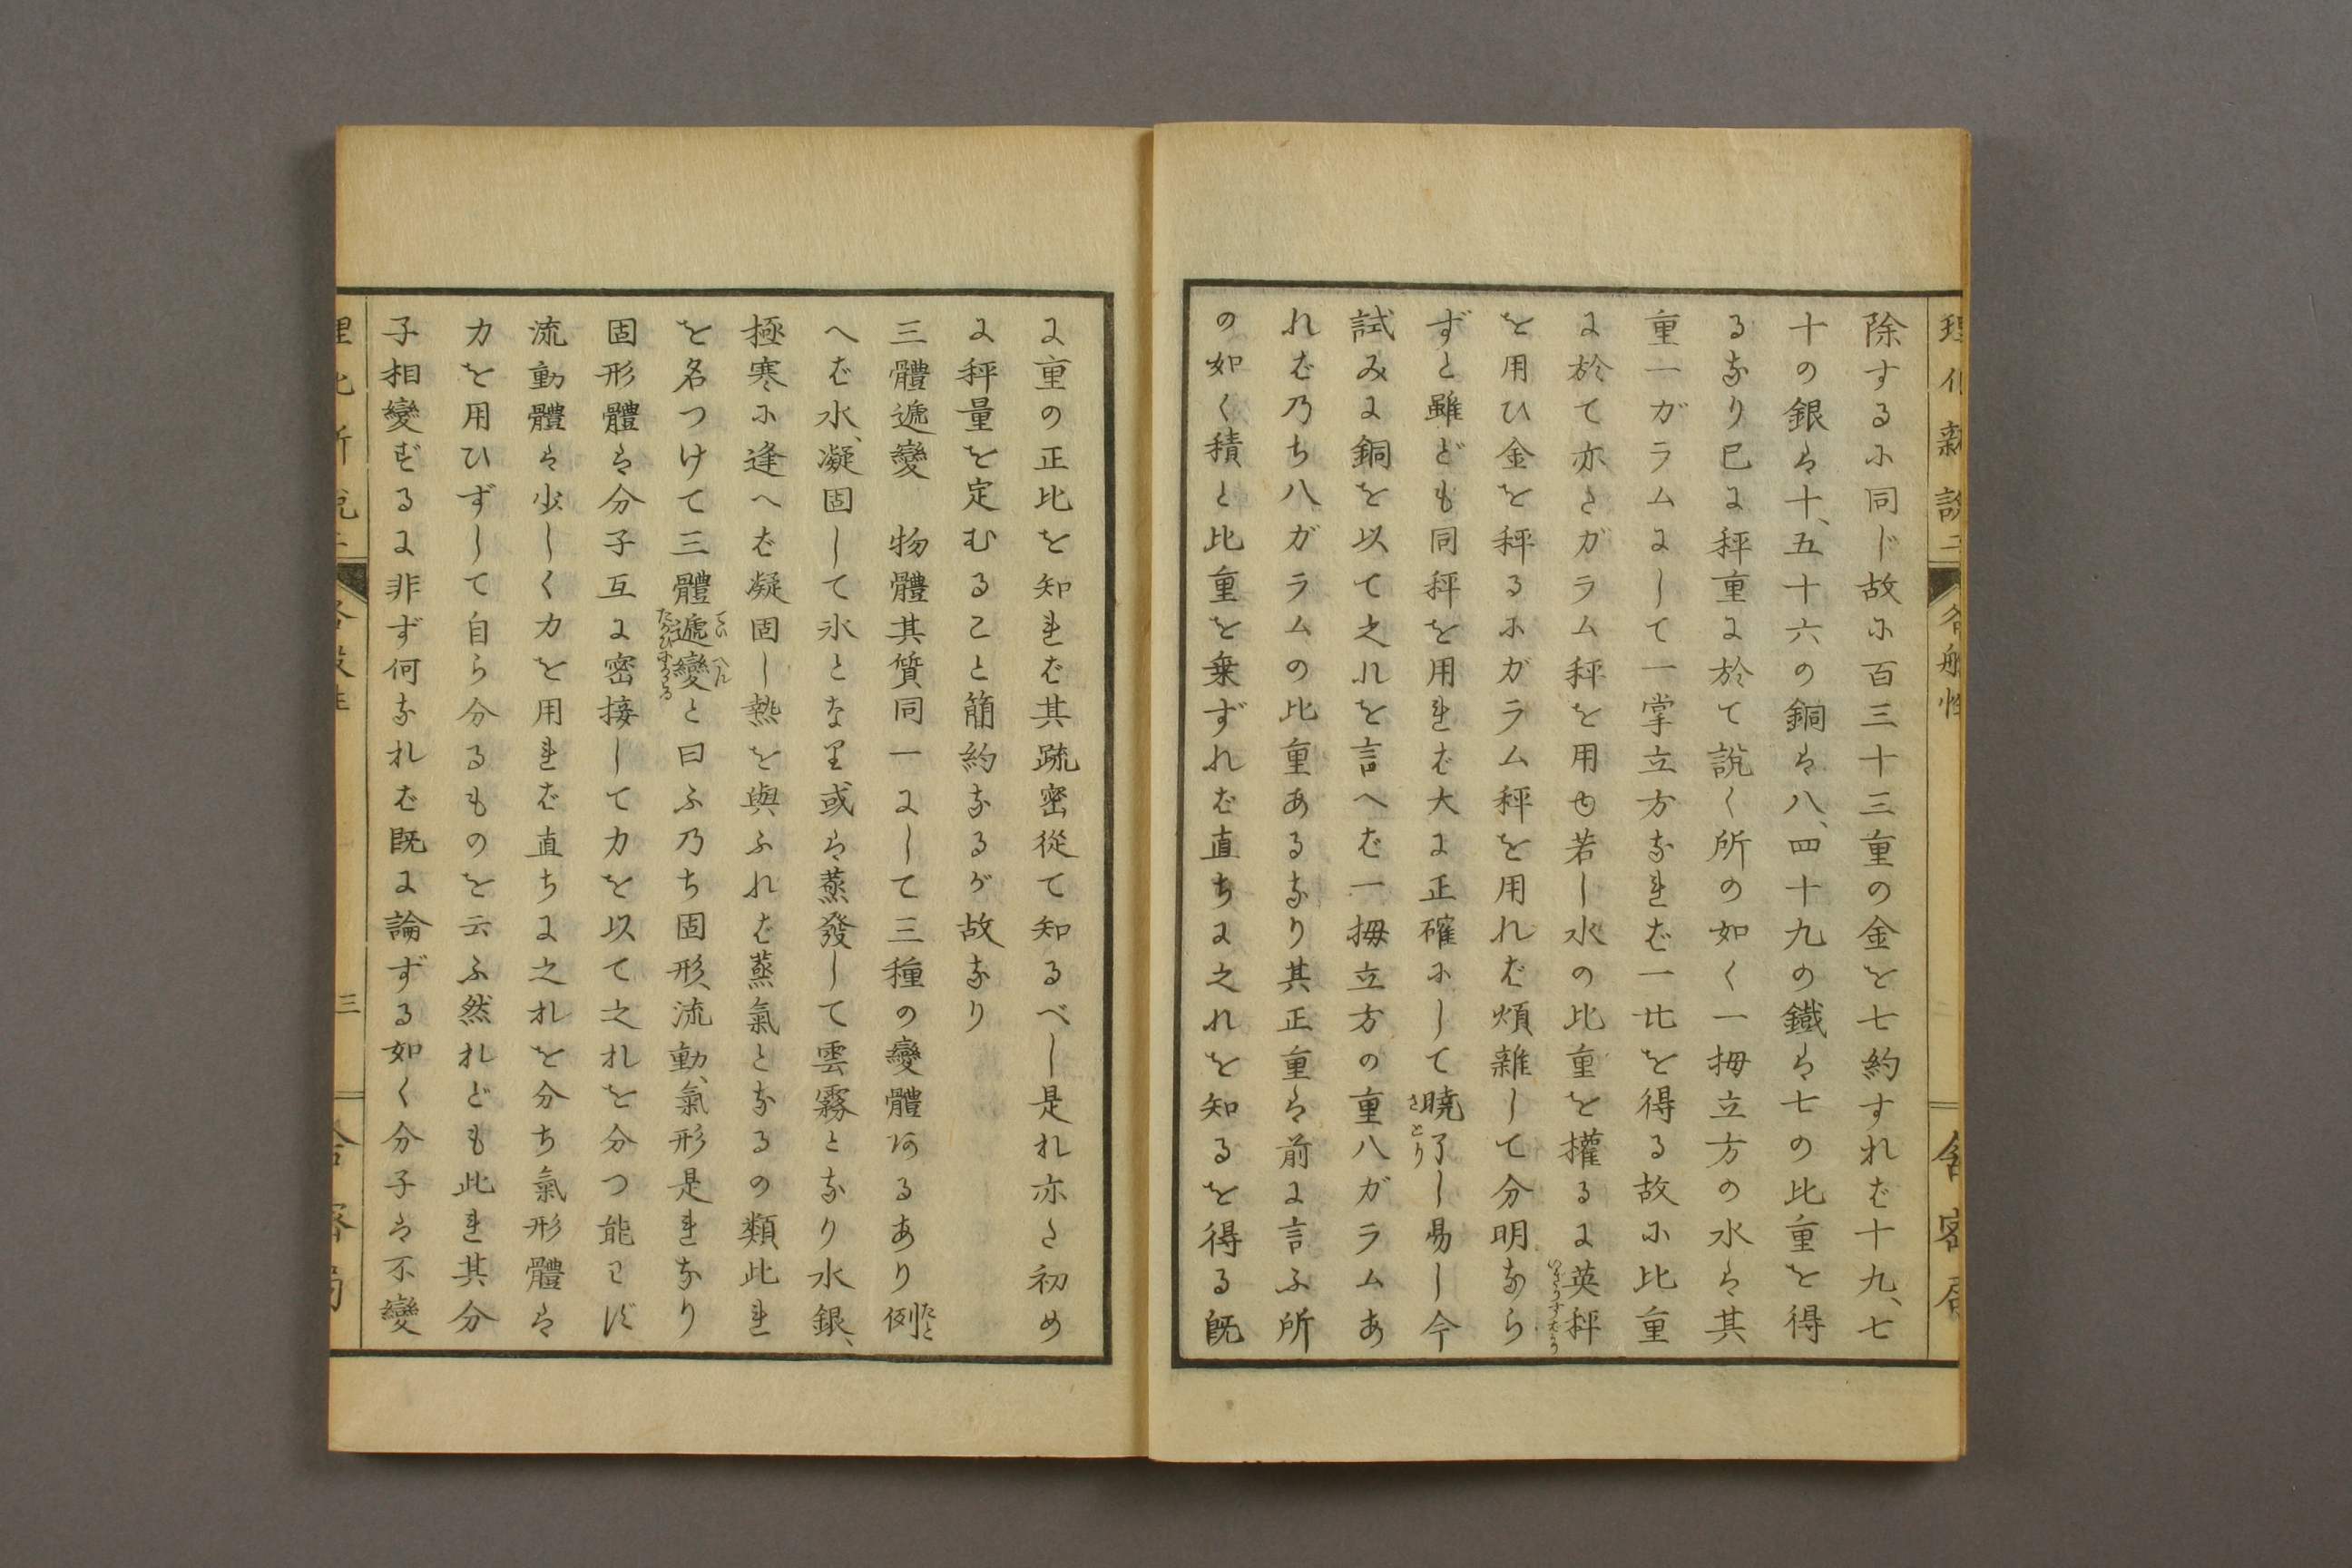 理化新說二 各般性 舍密局
除するに同じ故に百三十三重の金を七約すれば十九、七
十の銀は十、五十六の銅は八、四十九の鐵は七の比重を得
るなり已に秤重に於て說く所の如く一拇立方の水は其
重一ガラムにして一掌立方なれば一比を得る故に比重
に於て亦さガラム秤を用ゆ若し水の比重を權るに英秤
を用ひ金を秤るにガラム秤を用れば煩雜して分明なら
ずと雖ども同秤を用れば大に正確にして曉了し易し今
さとり
試みに銅を以て之れを言へば一拇立方の重八ガラムあ
れば乃ち八ガラムの比重あるなり其正重は前に言ふ所
の如く積と比重を乗ずれば直ちに之れを知るを得る既
に重の正比を知れば其疏密從て知るべし是れ亦さ初め
に秤量を定むること簡約なるが故なり
三體遞變 物體其質同一にして三種の變體あるあり例
たと
へば水、凝固して氷となり或は蒸發して雲霧となり水銀、
極寒に逢へば凝固し熱を與ふれば蒸氣となるの類此れ
を名つけて三體遞變と曰ふ乃ち固形、流動、氣形是れなり
ていへん
固形體は分子互に密接して力を以て之れを分つ能はず
流動體は少しく力を用れば直ちに之れを分ち氣形體は
力を用ひずして自ら分るものを云ふ然れども此れ其分
子相變ずるに非ず何なれば既に論ずる如く分子は不變
三